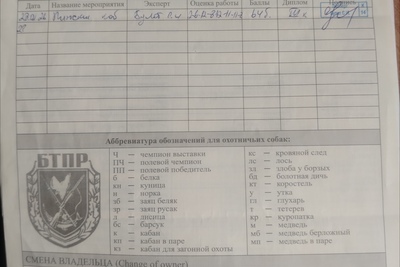 Дата Название мероприятия Эксперт Оценка работы Баллы Диплом
Аббревиатура обозначений для охотничьих собак:
БТПР
Ч — чемпион выставки
ПЧ — полевой чемпион
ПП — полевой победитель
б — беляк
кн — куница
н — норка
зб — заяц беляк
зр — заяц русак
л — лисица
бс — барсук
к — кабан
кп — кабан в паре
кз — кабан для загонной охоты
кс — кровяной след
лс — лось
зл — злоба у борзых
бд — болотная дичь
кт — коростель
у — утка
гл — глухарь
т — тетерев
кр — куропатка
м — медведь
мб — медведь берложный
мп — медведь в паре
СМЕНА ВЛАДЕЛЬЦА (Change of owner)